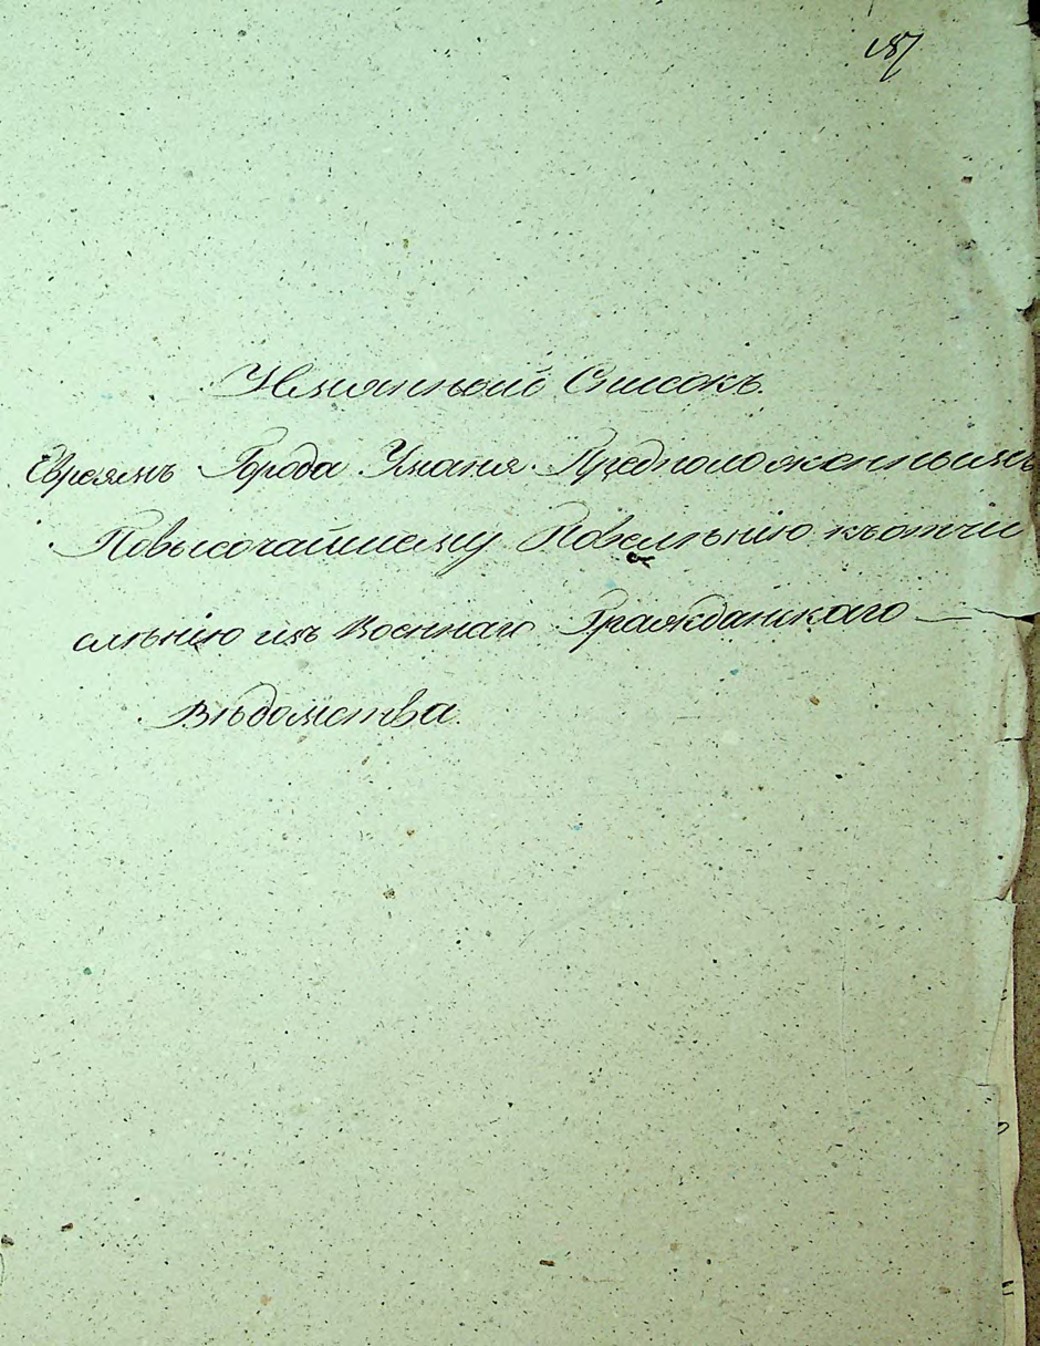 187
Имянный Списокъ.
Евреямъ Города Уманя Предположеннымъ
Повысочайшему Повелѣнію къотчи
слѣнію изъ Военнаго Гражданскаго
Вѣдомства.